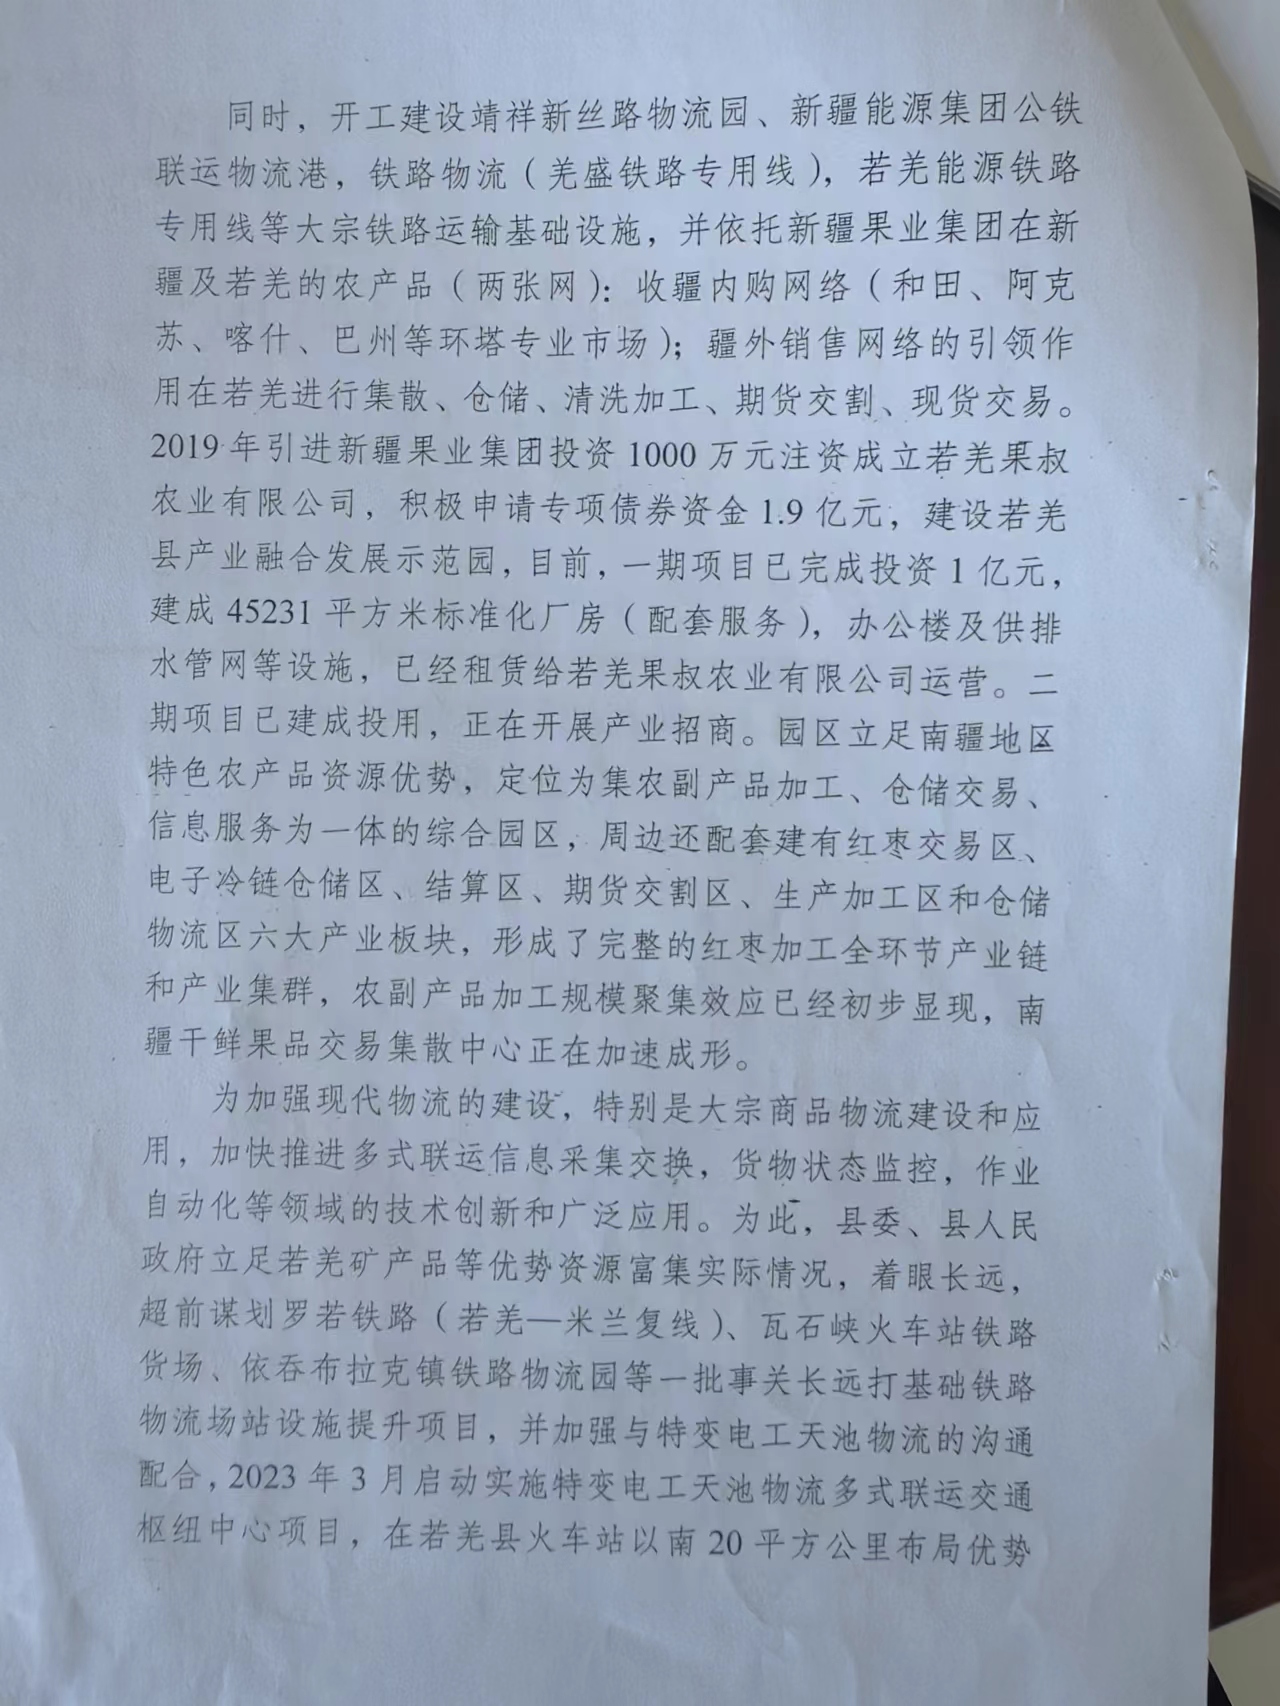 同时，开工建设靖祥新丝路物流园、新疆能源集团公铁
联运物流港，铁路物流（羌盛铁路专用线），若羌能源铁路
专用线等大宗铁路运输基础设施，并依托新疆果业集团在新
疆及若羌的农产品（两张网）：收疆内购网络（和田、阿克
苏、喀什、巴州等环塔专业市场）；疆外销售网络的引领作
用在若羌进行集散、仓储、清洗加工、期货交割、现货交易。
2019 年引进新疆果业集团投资 1000 万元注资成立若羌果叔
农业有限公司，积极申请专项债券资金 1.9 亿元，建设若羌
县产业融合发展示范园，目前，一期项目已完成投资 1 亿元，
建成 45231 平方米标准化厂房（配套服务），办公楼及供排
水管网等设施，已经租赁给若羌果叔农业有限公司运营。二
期项目已建成投用，正在开展产业招商。园区立足南疆地区
特色农产品资源优势，定位为集农副产品加工、仓储交易、
信息服务为一体的综合园区，周边还配套建有红枣交易区、
电子冷链仓储区、结算区、期货交割区、生产加工区和仓储
物流区六大产业板块，形成了完整的红枣加工全环节产业链
和产业集群，农副产品加工规模聚集效应已经初步显现，南
疆干鲜果品交易集散中心正在加速成形。
为加强现代物流的建设，特别是大宗商品物流建设和应
用，加快推进多式联运信息采集交换，货物状态监控，作业
自动化等领域的技术创新和广泛应用。为此，县委、县人民
政府立足若羌矿产品等优势资源富集实际情况，着眼长远，
超前谋划罗若铁路（若羌—米兰复线）、瓦石峡火车站铁路
货场、依吞布拉克镇铁路物流园等一批事关长远打基础铁路
物流场站设施提升项目，并加强与特变电工天池物流的沟通
配合，2023 年 3 月启动实施特变电工天池物流多式联运交通
枢纽中心项目，在若羌县火车站以南 20 平方公里布局优势